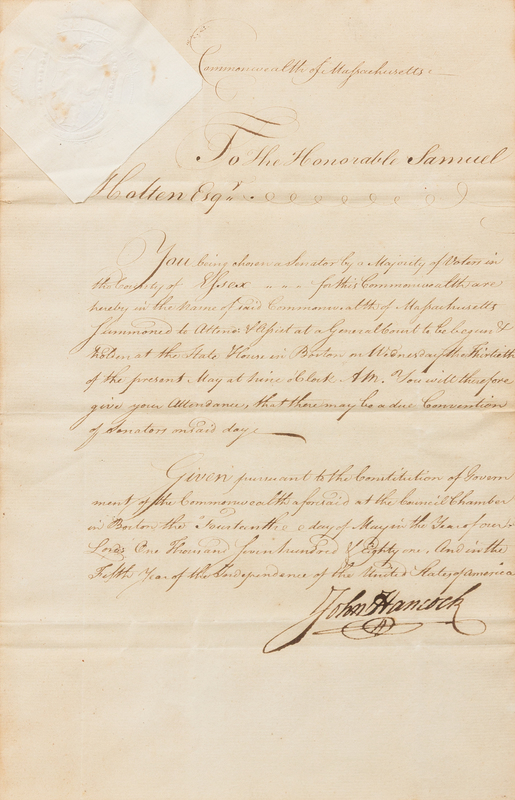 Commonwealth of Massachusetts
To The Honorable Samuel
Holten Esqr.
You being chosen a Senator by a Majority of Voters in
the County of Essex for this Commonwealth are
hereby in the Name of said Commonwealth of Massachusetts
Summoned to Attend & Assist at a General Court to be begun &
holden at the State House in Boston on Wednesday the thirtieth
of the present May at nine o'Clock AM. You will therefore
give your Attendance, that there may be a due Convention
of Senators on said day
Given pursuant to the Constitution of Govern
ment of the Commonwealth aforesaid at the Council Chamber
in Boston the day of May in the Year of our
Lord One Thousand Seven hundred & Eighty one, And in the
Fifth Year of the Independence of the United States of America
John Hancock